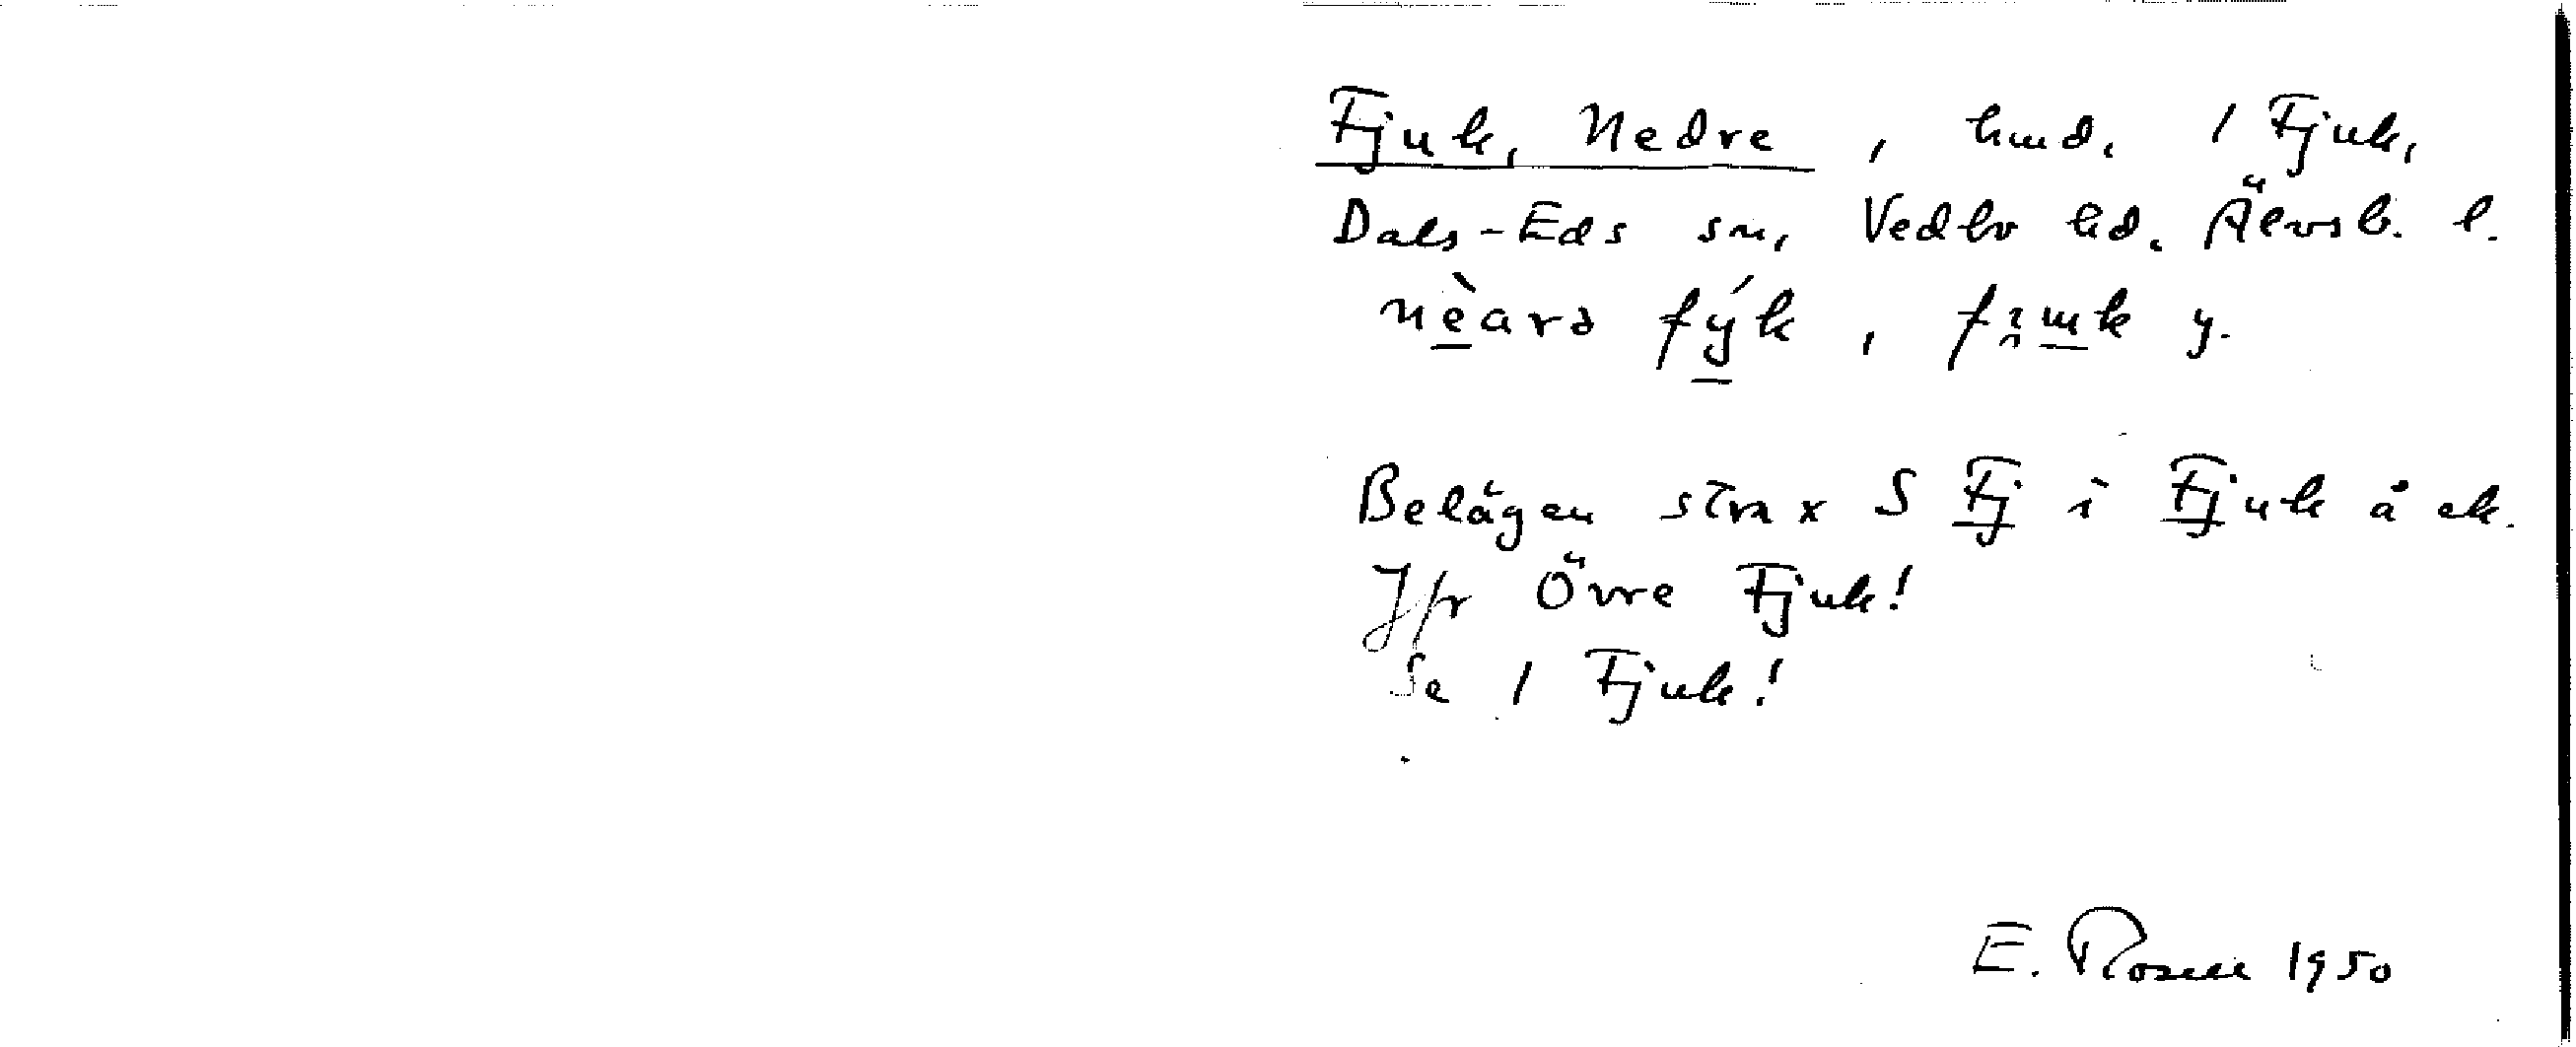 Fjuk, Nedre, hmd. 1 Fjuk,
Dals-Eds sn, Vedbo hd. Älvsb. l.
nèarə fýk, y.
Belägen strax S Fj i Fjuk å ek.
Jfr Övre Fjuk!
Se 1 Fjuk!
E. Rosell 1950